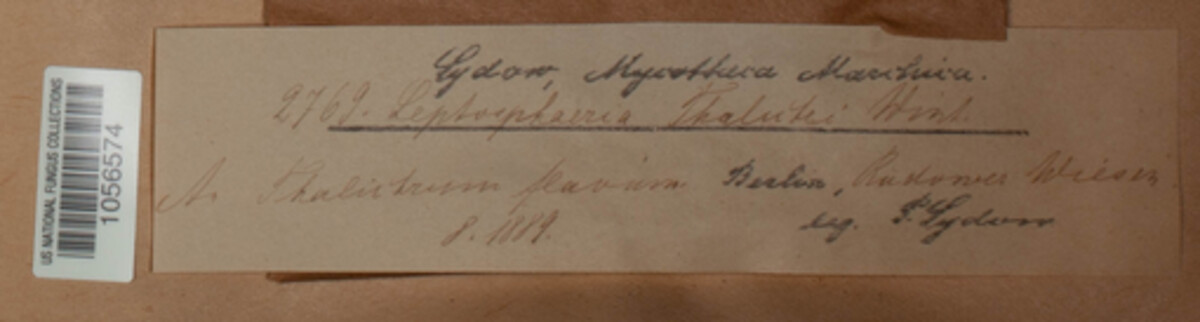 US NATIONAL FUNGUS COLLECTIONS
1056574
Sydow, Mycotheca Marchica.
2769. Leptosphaeria Thalictri Wint.
A. Thalictrum flavum. Berlin, Rudower Wiesen
8. 1889. leg. P. Sydow